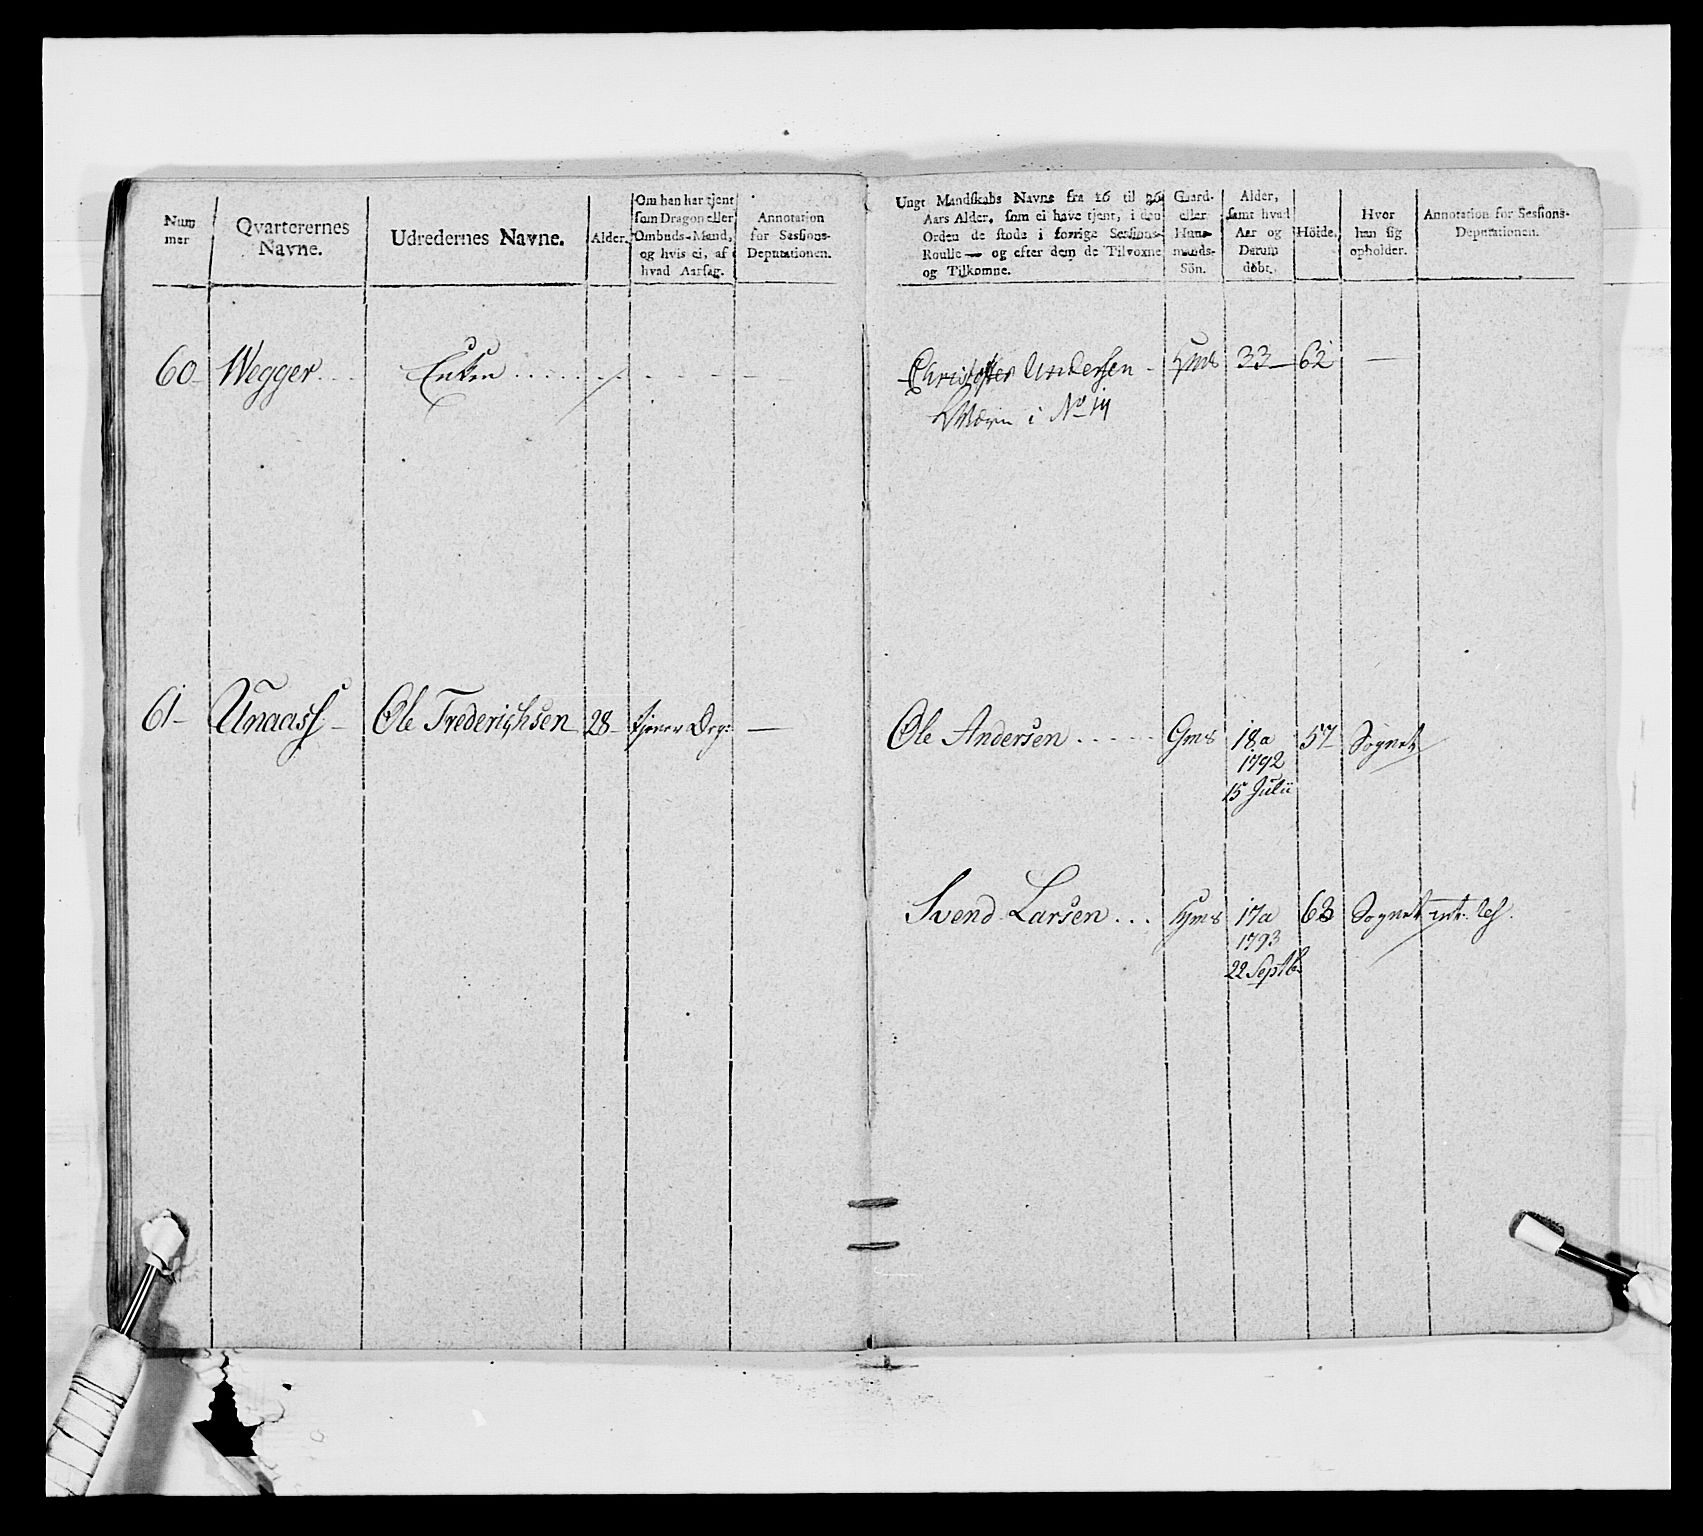 Num
mer
Qvarterernes
Navne.
Udredernes Navne.
Alder.
Om han har tjent
som Dragon eller
Ombuds-Mand,
og hvis ei, af
hvad Aarsag.
Annotation
for Sessions-
Deputationen.
Ungt Mandskabs Navne fra 16 til 26
Aars Alder, som ei have tjent, i den
Orden de stode i forrige Sessions-
Roulle — og efter dem de Tilvoxne
og Tilkomne.
Gaard-
eller
Huus-
mands-
Sön.
Alder,
samt hvad
Aar og
Datum
döbt.
Höide.
Hvor
han sig
opholder.
Annotation for Sessions-
Deputationen.
60 Wegger Enken
Christoffer Andersen Hms 33 62 —
i No 14
61 Unaass Ole Frederichsen 28 tjener Drg: —
Ole Andersen Gms 18a 57 Sognet
1792
15 Julii
Svend Larsen Hms 17a 63 Sognet
1793
22 Septb